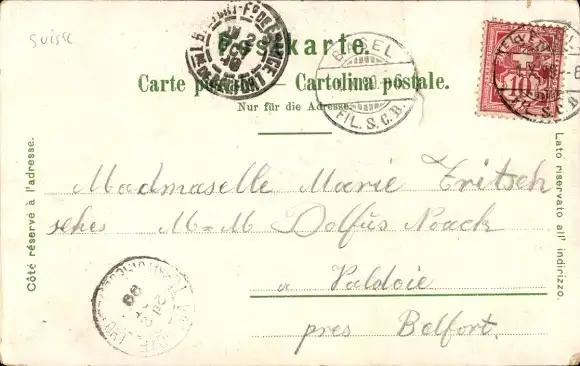 Suisse
Postkarte.
Carte postale. Cartolina postale.
Nur für die Adresse.
BASEL
FIL. S. C. B.
10
FIL. S. C. B.
Côté réservé à l'adresse.
Lato riservato all' indirizzo.
Madmaselle Marie Tritsch
sehes M=M Dolfüs Noack
a Valdoie
pres Belfort.